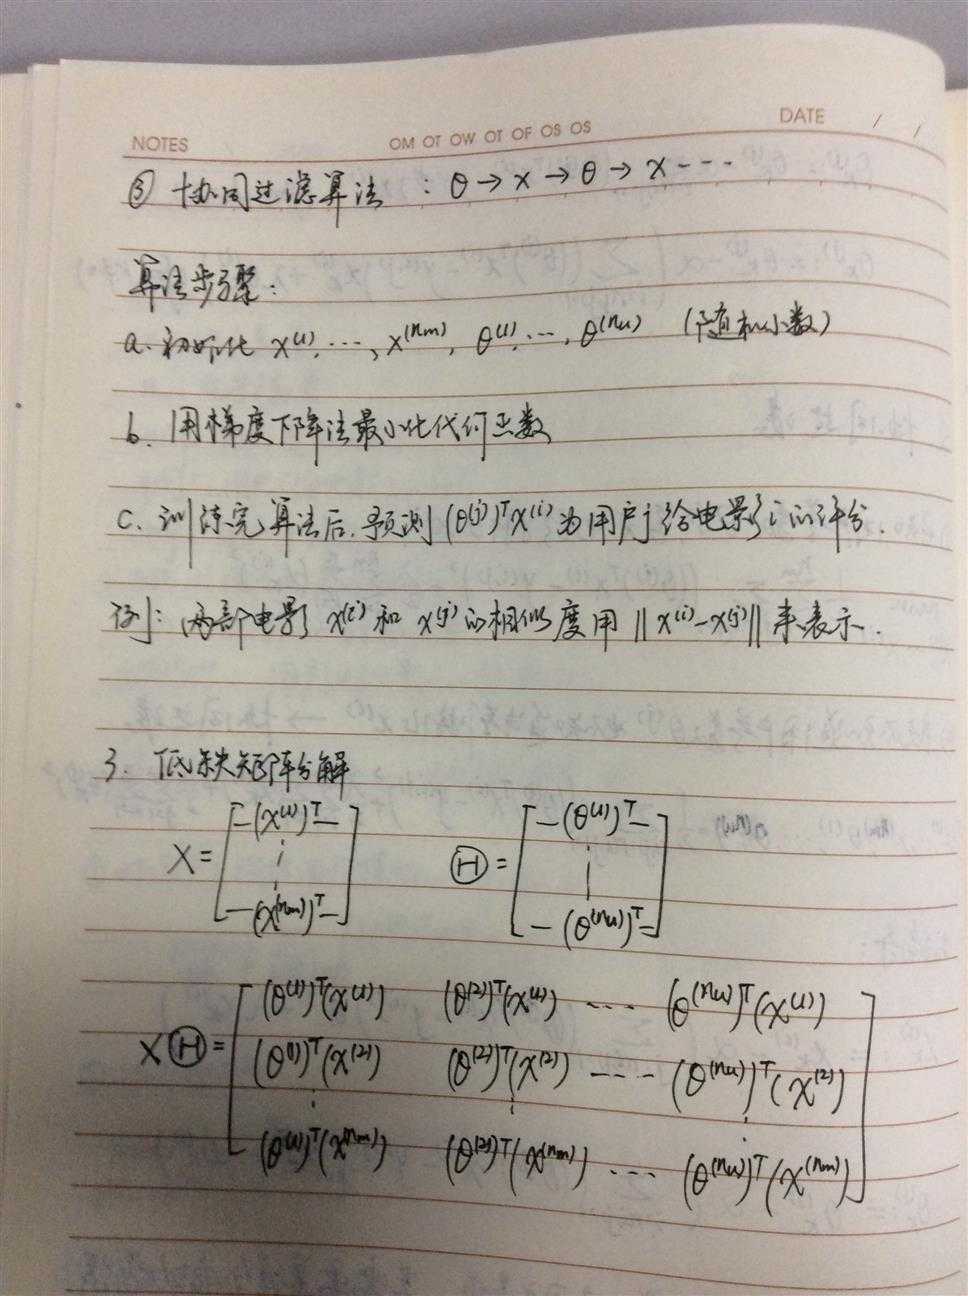 NOTES OM OT OW OT OF OS OS DATE / /
③ 协同过滤算法 : θ → x → θ → x ----
算法步骤:
a. 初始化 x⁽¹⁾, ⋯, x⁽ⁿᵐ⁾, θ⁽¹⁾, ⋯, θ⁽ⁿᵘ⁾ (随机小数)
b. 用梯度下降法最小化代价函数
c. 训练完算法后, 预测 (θ⁽ʲ⁾)ᵀx⁽ⁱ⁾ 为用户 j 给电影 i 的评分.
例: 两部电影 x⁽ⁱ⁾ 和 x⁽ʲ⁾ 的相似度用 ‖x⁽ⁱ⁾-x⁽ʲ⁾‖ 来表示.
3. 低秩矩阵分解
X = [ —(x⁽¹⁾)ᵀ— ⋮ —(x⁽ⁿᵐ⁾)ᵀ— ] Ⓗ = [ —(θ⁽¹⁾)ᵀ— ⋮ —(θ⁽ⁿᵘ⁾)ᵀ— ]
(θ⁽¹⁾)ᵀ(x⁽¹⁾) (θ⁽²⁾)ᵀ(x⁽¹⁾) ---- (θ⁽ⁿᵘ⁾)ᵀ(x⁽¹⁾)
XⒽ = (θ⁽¹⁾)ᵀ(x⁽²⁾) (θ⁽²⁾)ᵀ(x⁽²⁾) ---- (θ⁽ⁿᵘ⁾)ᵀ(x⁽²⁾)
⋮ ⋮ ⋮
(θ⁽¹⁾)ᵀ(x⁽ⁿᵐ⁾) (θ⁽²⁾)ᵀ(x⁽ⁿᵐ⁾) ---- (θ⁽ⁿᵘ⁾)ᵀ(x⁽ⁿᵐ⁾)